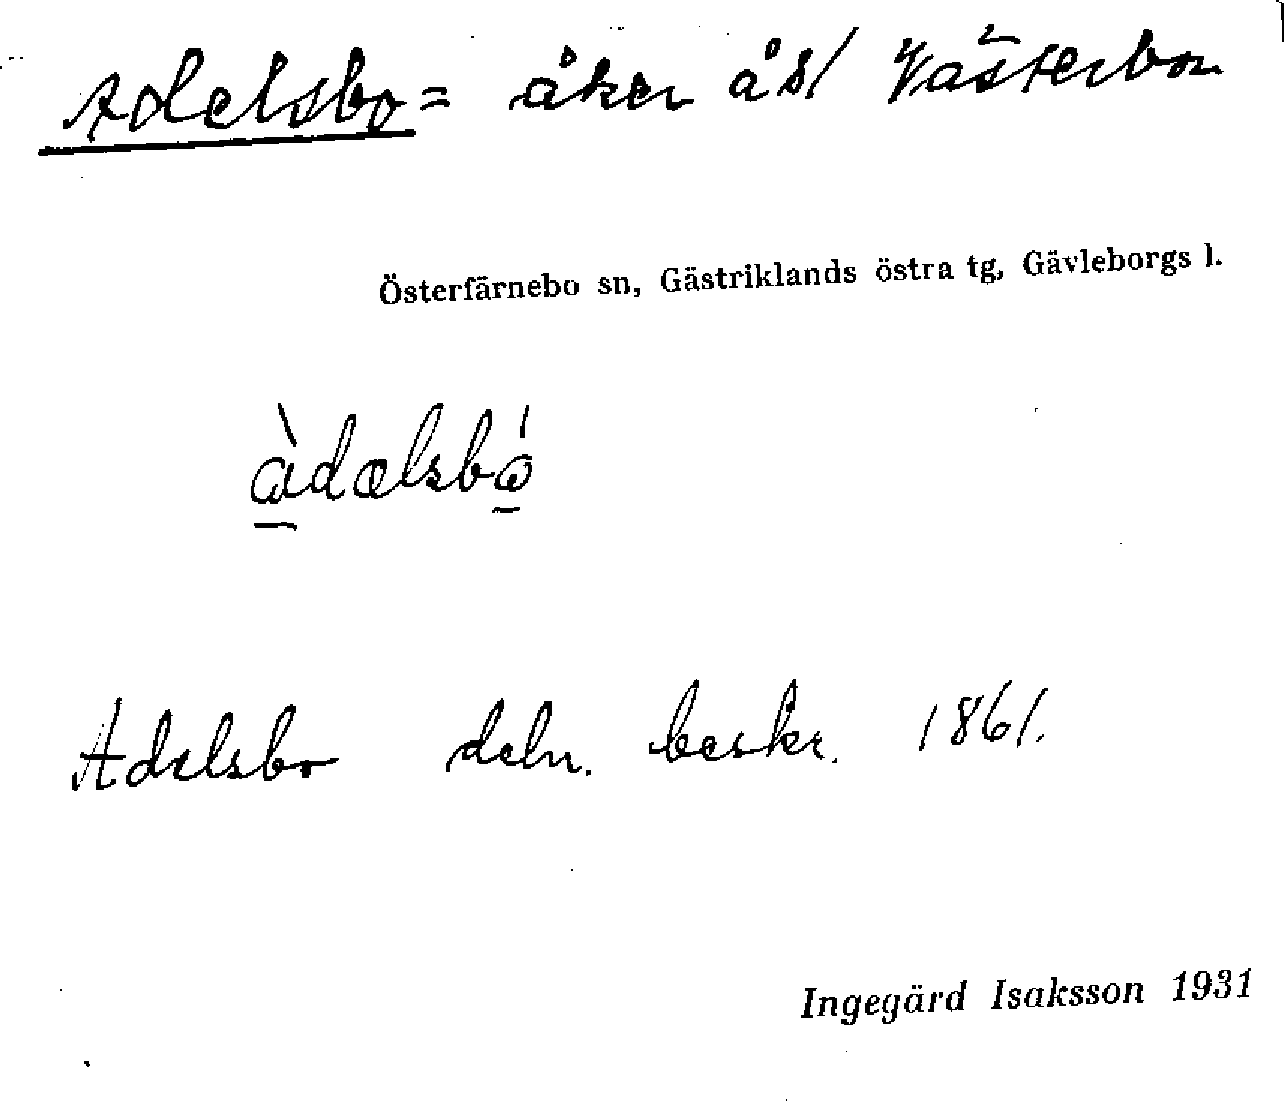 Adelsbo = åker å s/ Västerbon
Österfärnebo sn, Gästriklands östra tg, Gävleborgs l.
àdælsbó
Adelsbo deln. beskr. 1861.
Ingegärd Isaksson 1931